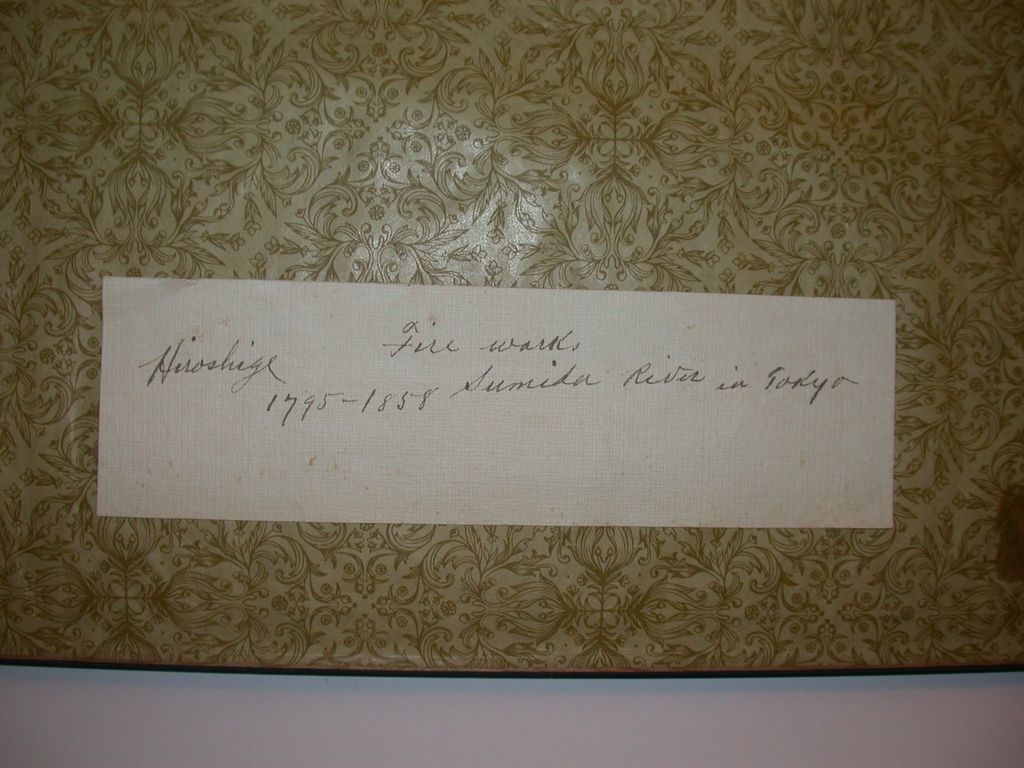 Fire works
Hiroshige Sumida River in Tokyo
1795-1858